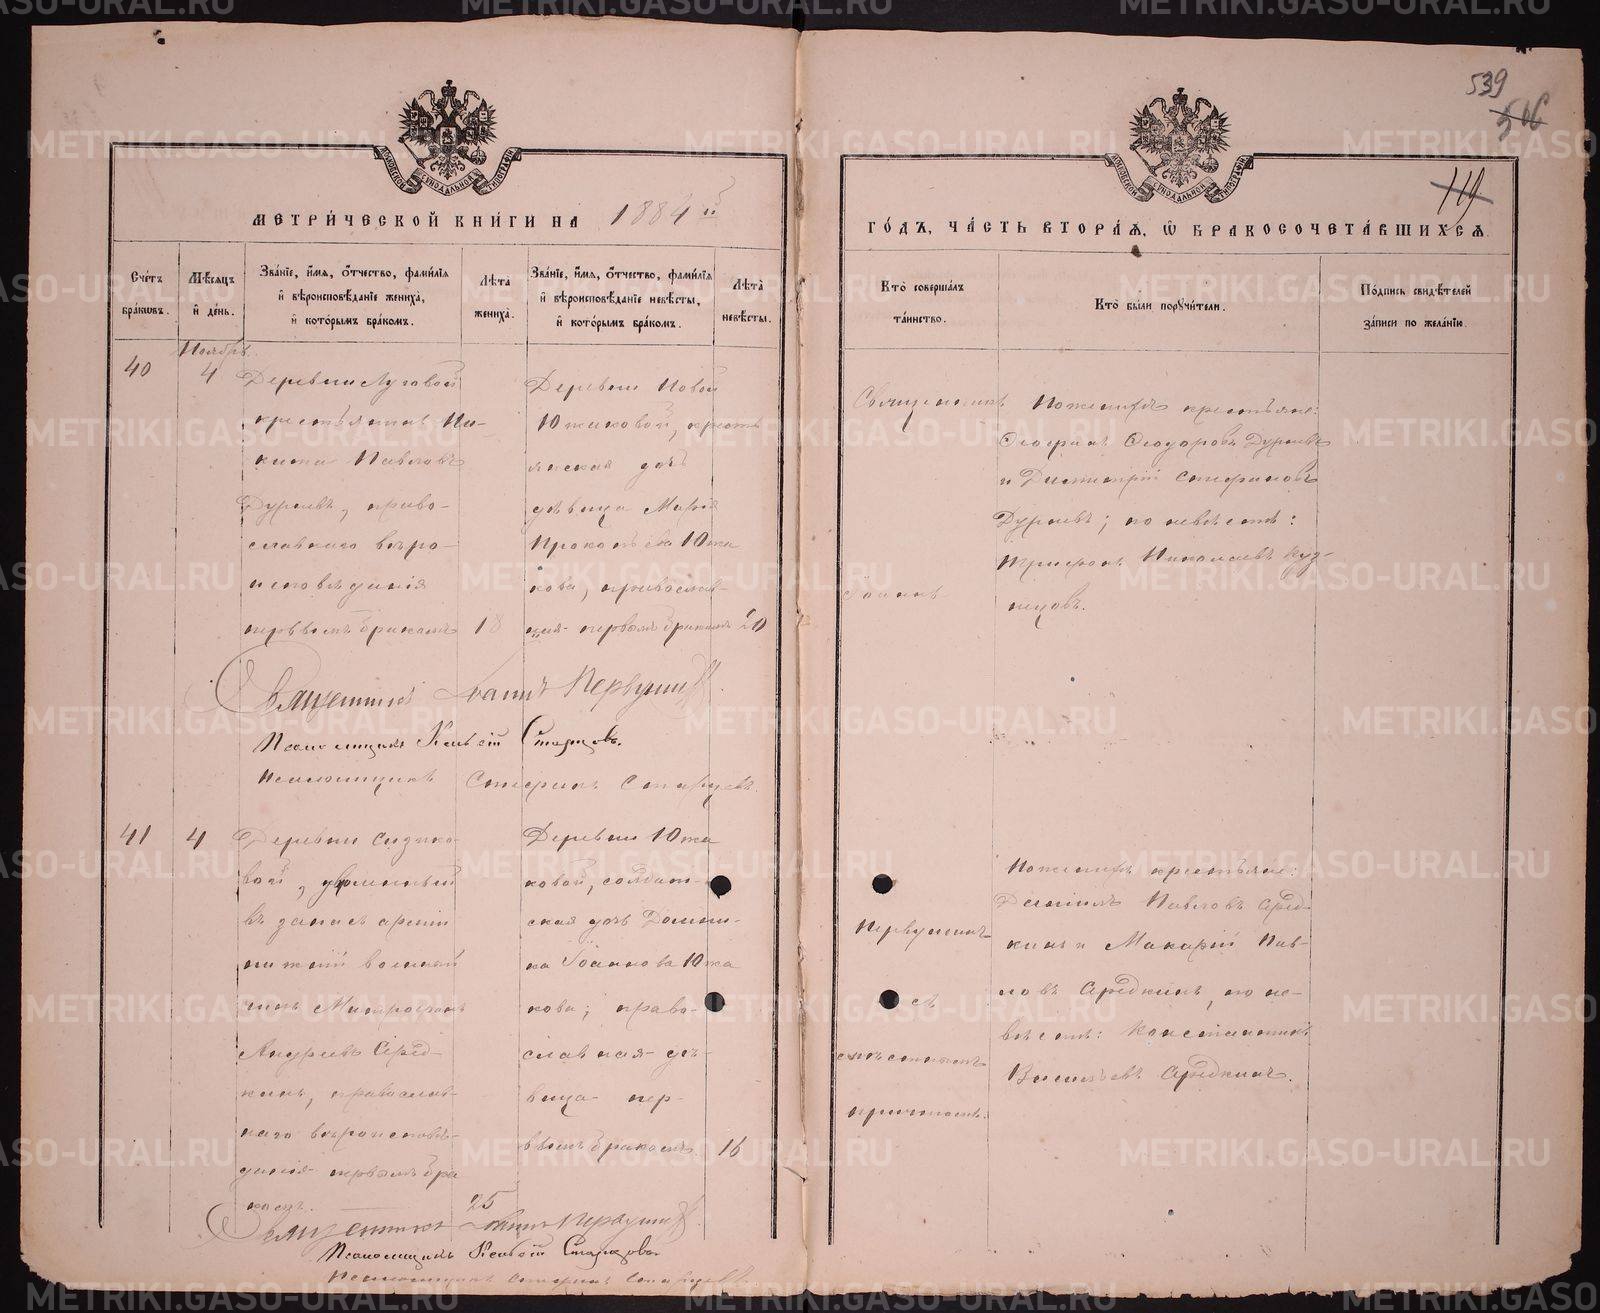 539
506
119
МОСКОВСКОЙ СѴНОДАЛЬНОЙ ТИПОГРАФІИ
МОСКОВСКОЙ СѴНОДАЛЬНОЙ ТИПОГРАФІИ
МЕТРИ́ЧЕСКОЙ КНИ́ГИ НА 1884 й
ГО́ДЪ, ЧА́СТЬ ВТОРА́Я, Ѡ БРАКОСОЧЕТА́ВШИХСЯ
Сче́тъ бра́ковъ.
Мѣ́сяцъ и҆ де́нь.
Зва́нїе, и҆́мя, ѻ҆́тчество, фами́лїя и҆ вѣроисповѣ́данїе жениха̀, и҆ кото́рымъ бра́комъ.
Лѣ́та жениха̀.
Зва́нїе, и҆́мя, ѻ҆́тчество, фами́лїя и҆ вѣроисповѣ́данїе невѣ́сты, и҆ кото́рымъ бра́комъ.
Лѣ́та невѣ́сты.
Кто̀ соверша́лъ та́инство.
Кто̀ бы́ли порꙋчи́тели.
По́дпись свидѣ́телей за́писи по жела́нїю.
Ноябрь
40
4
Деревни Луговой
крестьянинъ Ни-
кита Павловъ
Дурневъ, право-
славнаго вѣро-
исповѣданія
первымъ бракомъ
18
Деревни Новой
Южаковой, кресть
янская дочь
дѣвица Марія
Прокопьева Южа
кова, православ-
ная первымъ бракомъ
20
Священникъ
Іоаннъ
По женихѣ крестьяне:
Георгій Ѳеодоровъ Дурневъ
и Димитрій Стефановъ
Дурневъ; по невѣстѣ:
Трифонъ Николаевъ Куз-
нецовъ.
Священникъ Іоаннъ Первушинъ
Псаломщикъ Старцовъ.
Псаломщикъ Стефанъ Старцевъ.
41
4
Деревни
вой, уволенный
въ запасъ арміи
нижній военный
чинъ Митрофанъ
Андреевъ Сред-
кинъ, православ-
наго вѣроисповѣ-
данія первымъ бра
комъ.
25
Деревни Южа
ковой, солдат-
ская дочь Домни-
ка Іоаннова Южа
кова; право-
славная дѣ-
вица пер-
вымъ бракомъ
16
Первушинъ
съ
причтомъ.
По женихѣ крестьяне:
Даніилъ Павловъ Сред-
кинъ и Макарій Пав-
ловъ Средкинъ, по не-
вѣстѣ: Константинъ
Васильевъ Средкинъ.
Священникъ Іоаннъ Первушинъ
Псаломщикъ Старцовъ.
Псаломщикъ Стефанъ Старцевъ
METRIKI.GASO-URAL.RU